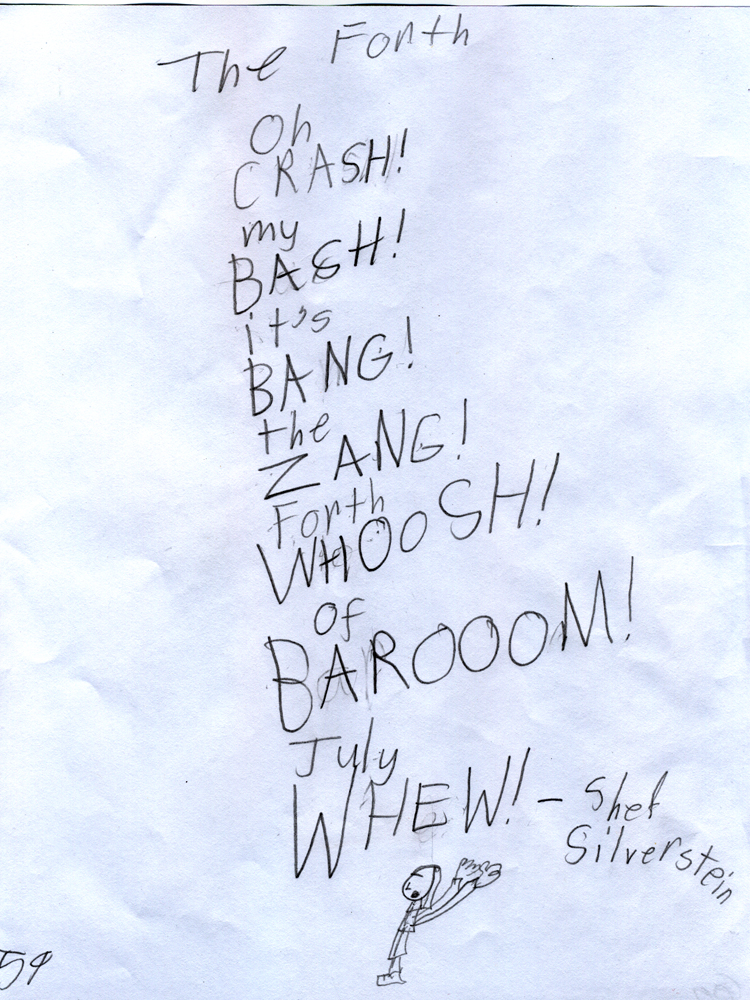 The Forth
Oh
CRASH!
my
BASH!
it's
BANG!
the
ZANG!
Forth
WHOOSH!
of
BAROOOM!
July
WHEW! - Shel
Silverstein
59